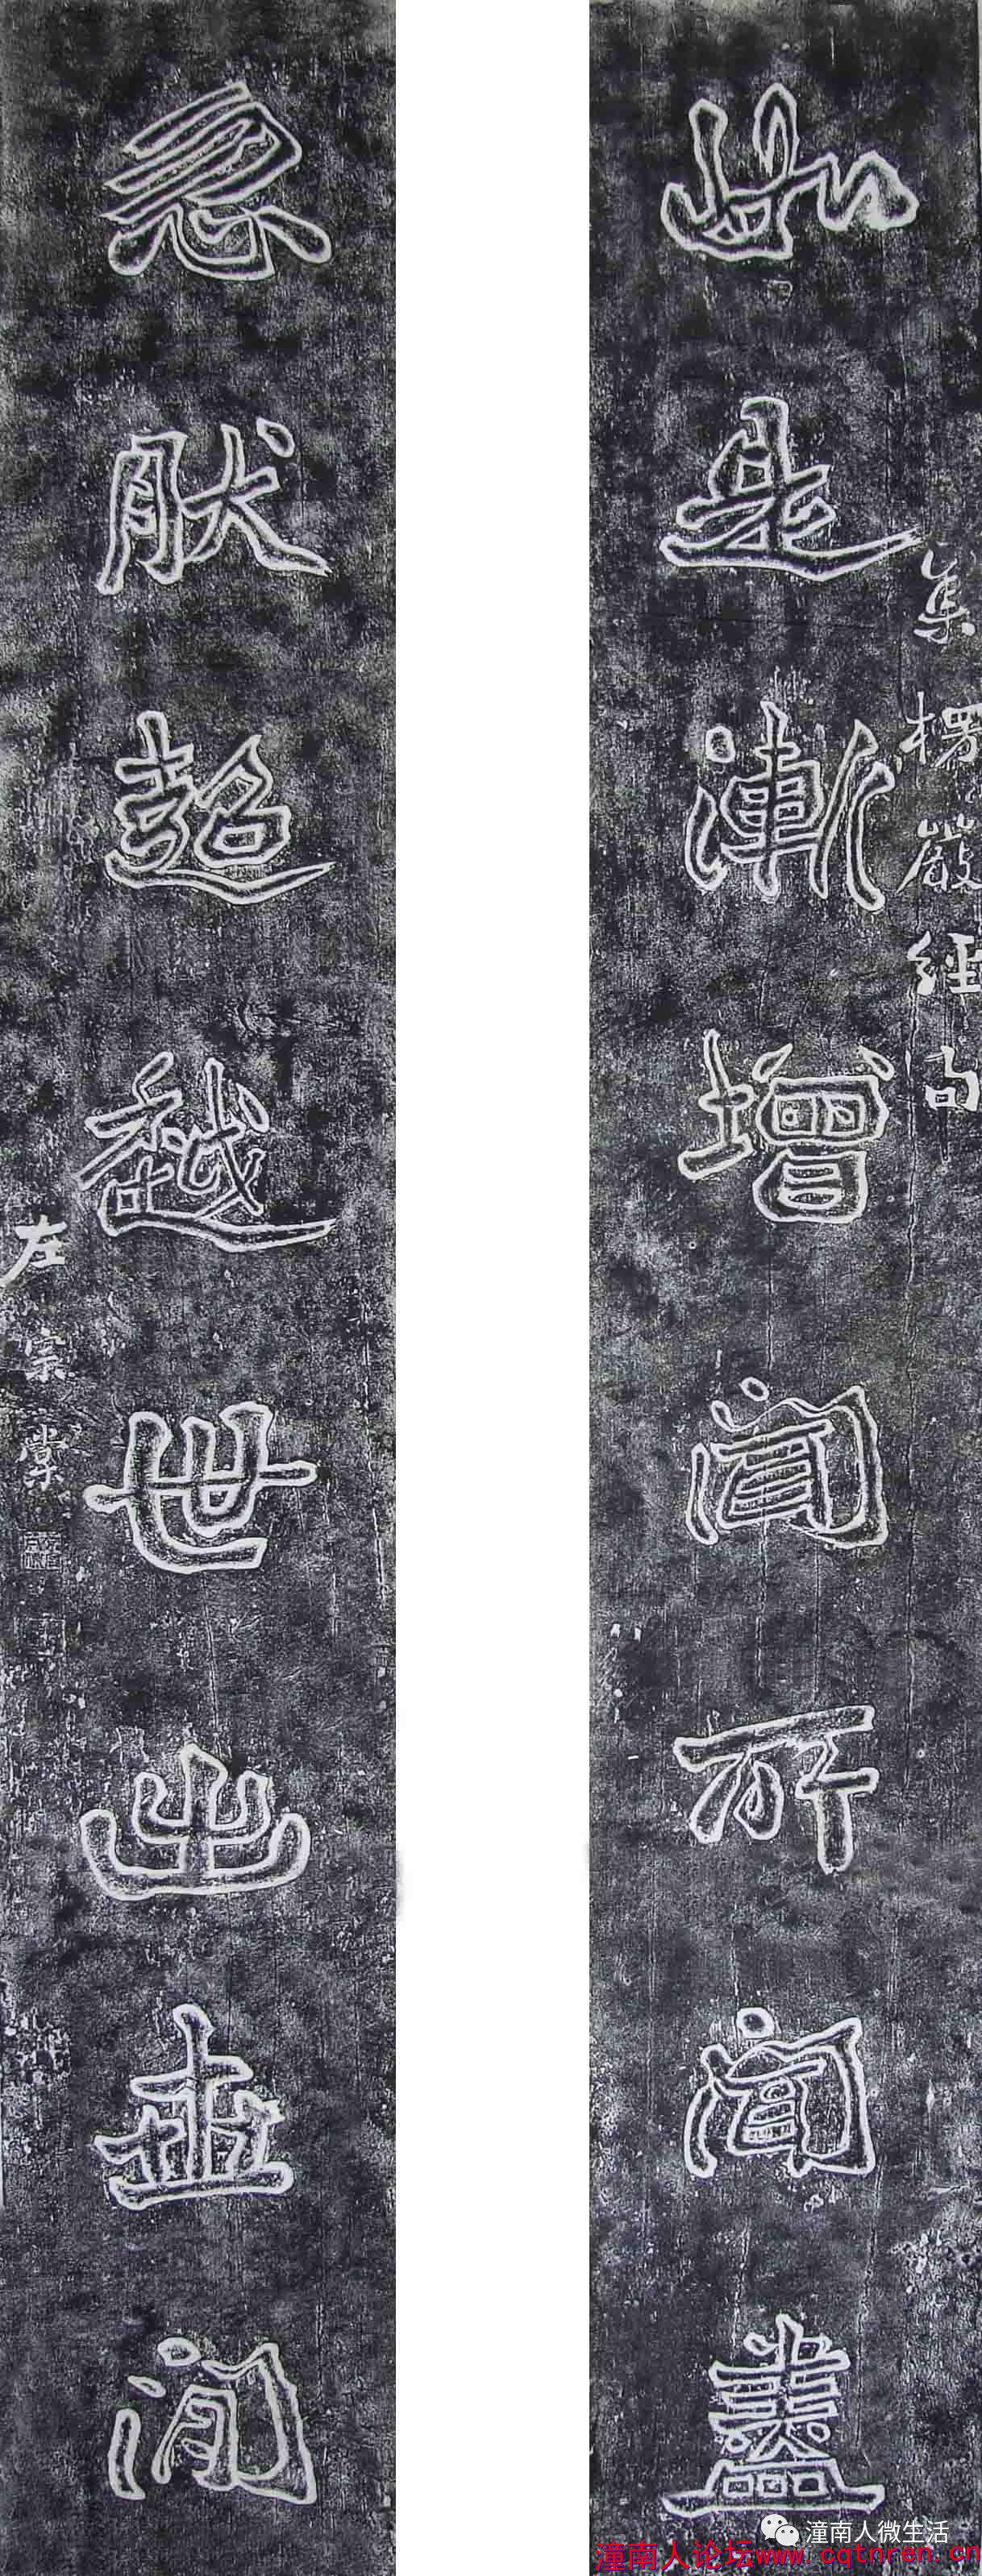 集楞嚴經句
如是漸增聞所聞盡
忽肰超越世出世閒
左宗棠
潼南人微生活
潼南人论坛www.cqtnren.cn